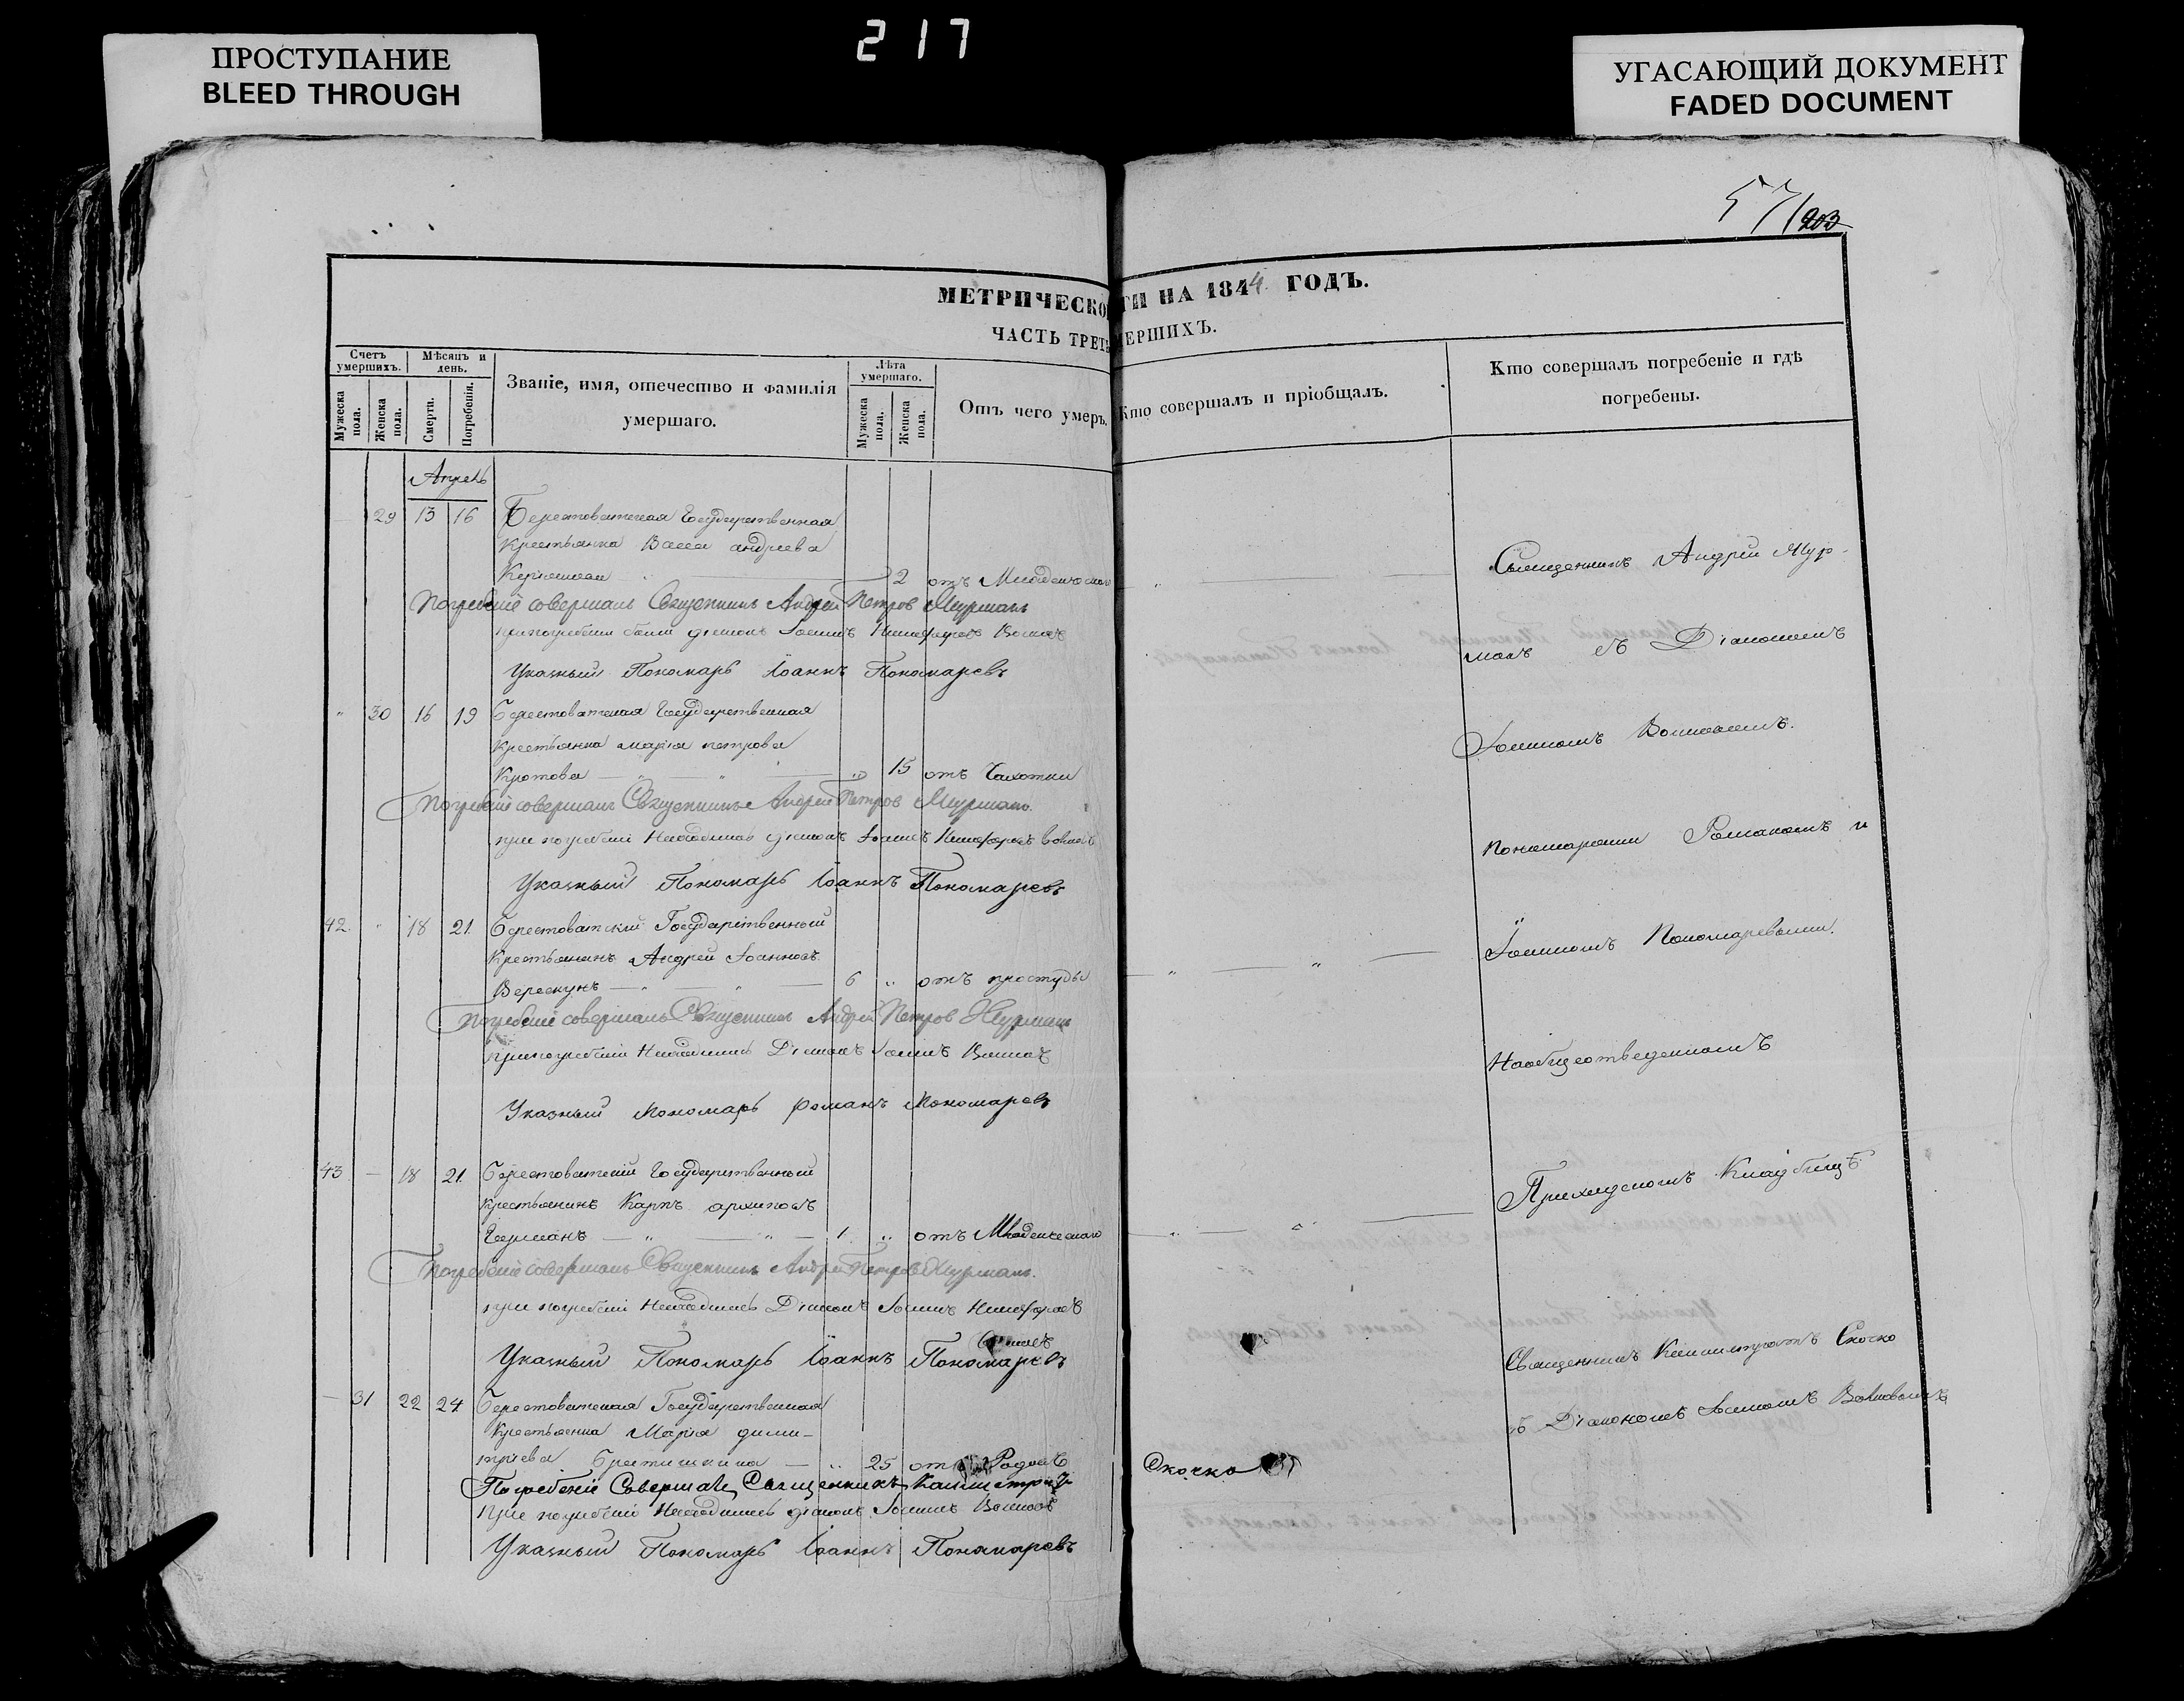 217
ПРОСТУПАНИЕ
BLEED THROUGH
УГАСАЮЩИЙ ДОКУМЕНТ
FADED DOCUMENT
57/203
МЕТРИЧЕСКО ГИ НА 1844 ГОДЪ.
ЧАСТЬ ТРЕТЬ МЕРШИХЪ.
Счетъ умершихъ.
Мѣсяцъ и день.
Званіе, имя, отечество и фамилія умершаго.
Лѣта умершаго.
Отъ чего умеръ.
Кто совершалъ и пріобщалъ.
Кто совершалъ погребеніе и гдѣ погребены.
Мужеска пола.
Женска пола.
Смерти.
Погребенія.
Мужеска пола.
Женска пола.
Апрель
29 13 16 Берестоватская Государственная
крестьянка Васса андреева
2 отъ Младенческаго
Погребеніе совершалъ Священникъ Андрей Петров Мурманъ
при погребеніи были діаконъ Іоаннъ Никифоровъ
Указный Пономарь Іоаннъ Пономаревъ
" 30 16 19 Берестоватская Государственная
крестьянка марія петрова
Кротова " 15 отъ Чахотки
Погребеніе совершалъ Священникъ Андрей Петров Мурманъ.
при погребеніи Находились діаконъ Іоаннъ Никифоровъ
Указный Пономарь Іоаннъ Пономаревъ
42. " 18 21. Берестоватскій Государственный
Крестьянинъ Андрей Іоанновъ
Верескунъ 6 " отъ простуды
Погребеніе совершалъ Священникъ Андрей Петров Мурманъ
при погребеніи Находились Діаконъ Іоаннъ
Указный Пономарь Романъ Пономаревъ
43 — 18 21. Берестоватскій Государственный
крестьянинъ Карпъ архиповъ
1 " отъ Младенческаго
Погребеніе совершалъ Священникъ Андрей Петров Мурманъ.
при погребеніи Находились Діаконъ Іоаннъ Никифоровъ
Указный Пономарь Іоаннъ Пономаревъ
— 31 22 24 Берестоватская Государственная
Крестьянка Марія дими-
тріева — " 25 отъ Родовъ
Погребеніе Совершалъ Священникъ Калистратъ
Скочко
при погребеніи Находились діаконъ Іоаннъ
Указный Пономарь Іоаннъ Пономаревъ
Священникъ Андрей Мур-
манъ съ Діакономъ
Іоанномъ
пономарями Романомъ и
Іоанномъ Пономаревыми.
На общеотведенномъ
Приходскомъ Кладбищѣ
Священникъ Калистратъ Скочко
съ Діакономъ Іоанномъ